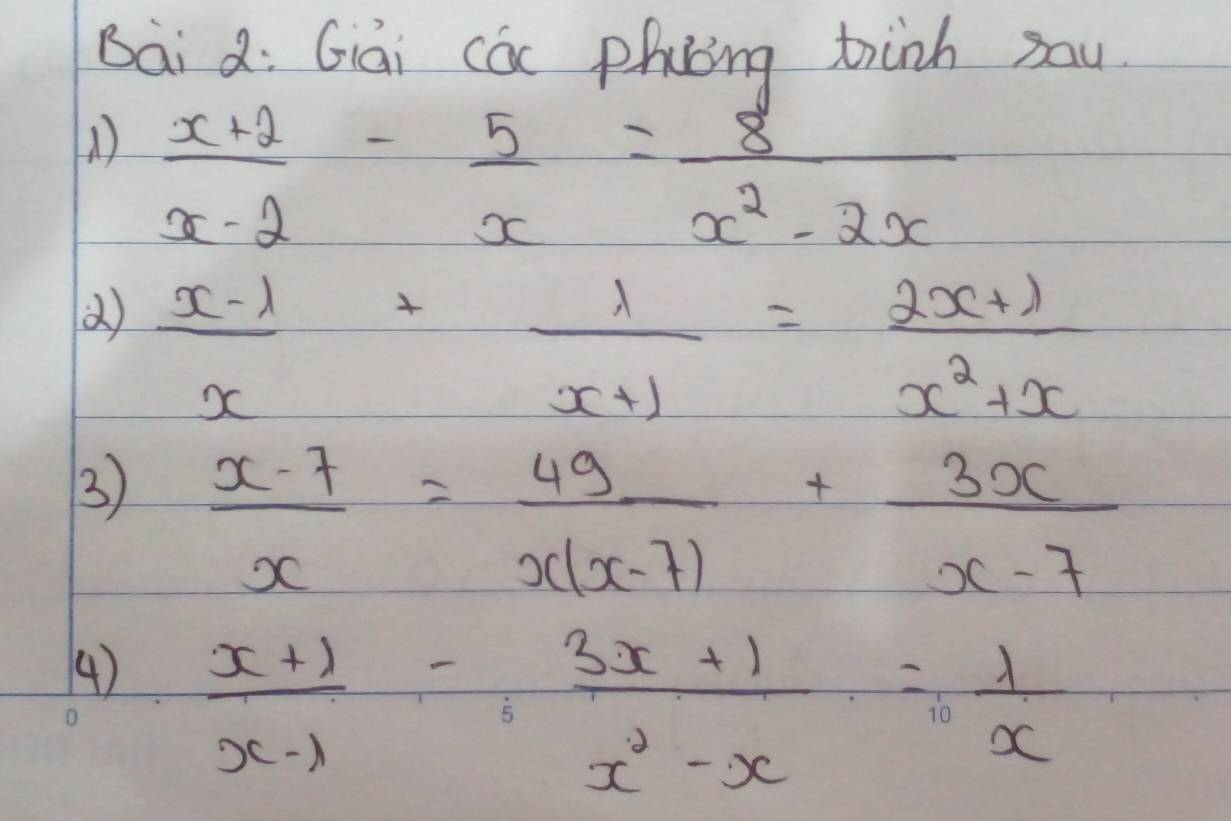 Bài 2: Giải các phương trình sau.
1) (x+2)/(x-2) - 5/x = 8/(x² - 2x)
2) (x-1)/x + 1/(x+1) = (2x+1)/(x²+x)
3) (x-7)/x = 49/(x(x-7)) + 3x/(x-7)
4) (x+1)/(x-1) - (3x+1)/(x²-x) = 1/x
0 5 10